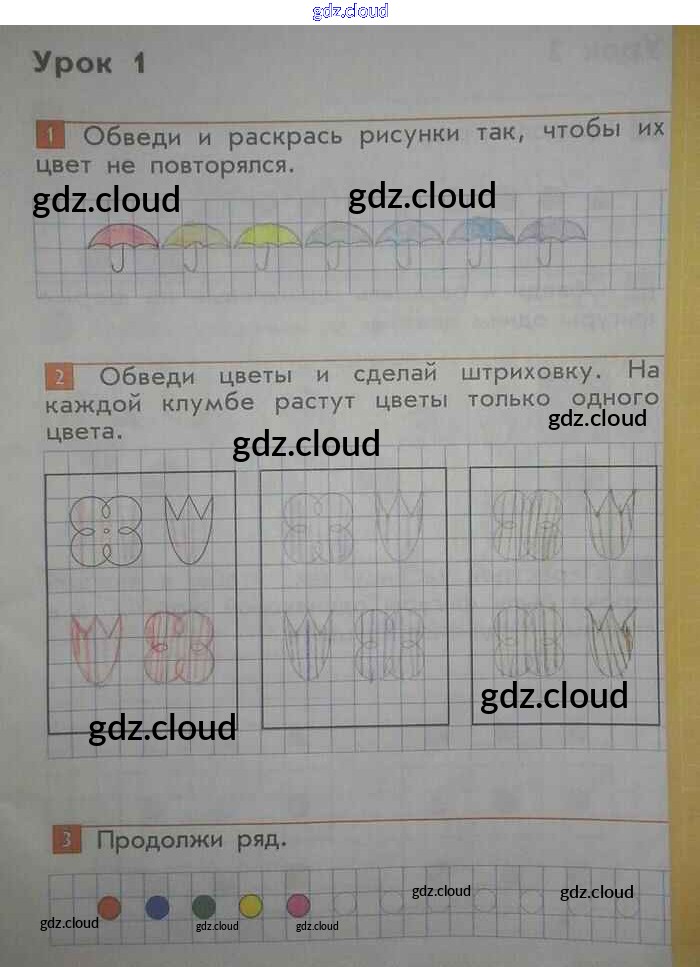 gdz.cloud
Урок 1
1 Обведи и раскрась рисунки так, чтобы их
цвет не повторялся.
gdz.cloud
gdz.cloud
2 Обведи цветы и сделай штриховку. На
каждой клумбе растут цветы только одного
цвета.
gdz.cloud
gdz.cloud
gdz.cloud
gdz.cloud
3 Продолжи ряд.
gdz.cloud
gdz.cloud
gdz.cloud
gdz.cloud
gdz.cloud